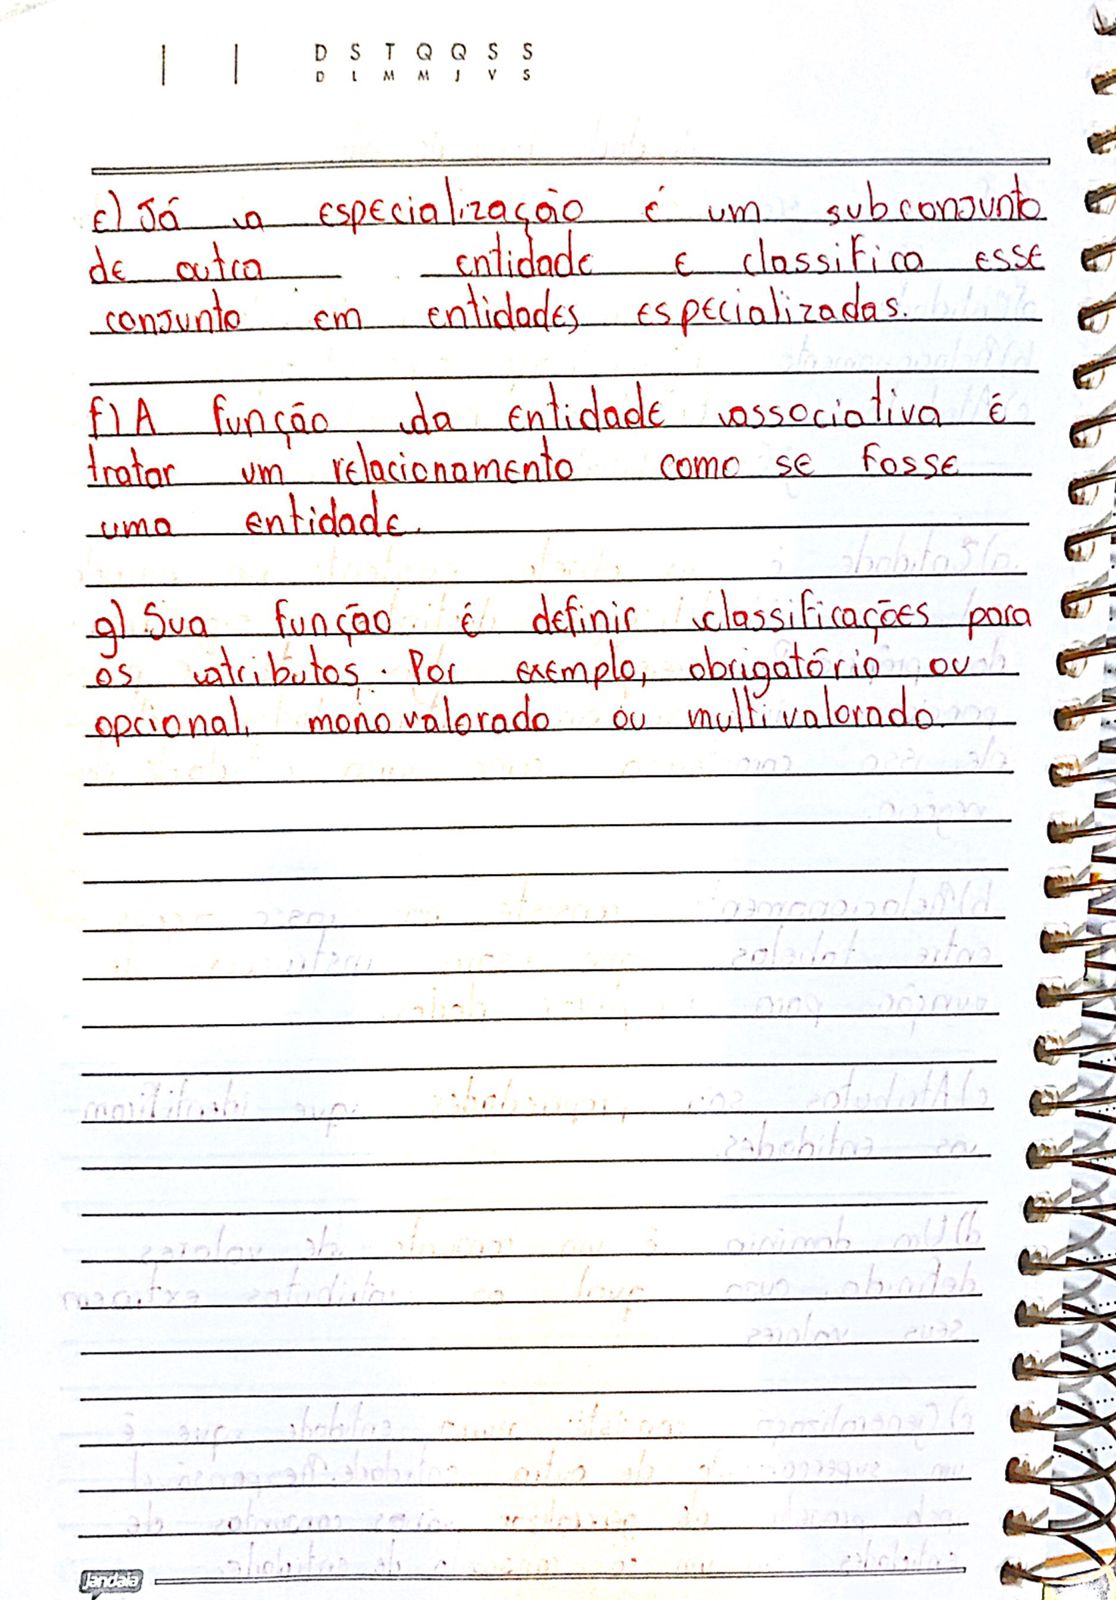 D S T Q Q S S
D L M M J V S
e) Já a especialização é um subconjunto
de outra entidade e classifica esse
conjunto em entidades especializadas.
f) A função da entidade associativa é
tratar um relacionamento como se fosse
uma entidade.
g) Sua função é definir classificações para
os atributos. Por exemplo, obrigatório ou
opcional, monovalorado ou multivalorado.
Jandaia